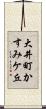 大井町か
すみケ丘